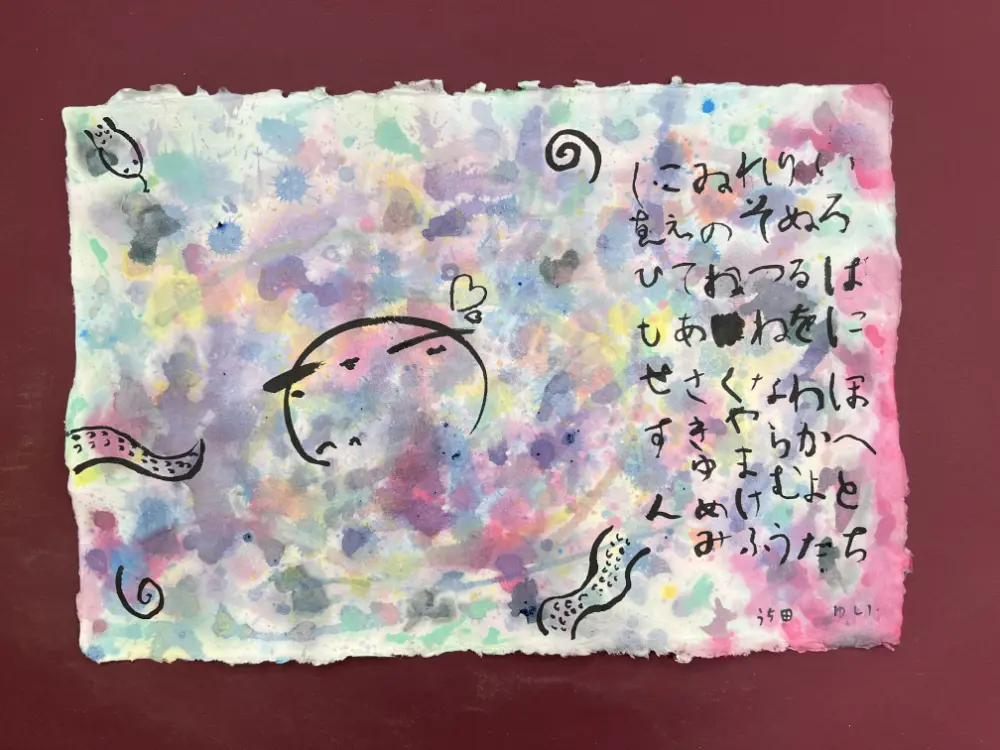 いろばにほへとち
りぬるをわかよた
れそつねならむう
ゐのねくやまけふ
こえてあさきゆめみ
しゑひもせすん
うち田